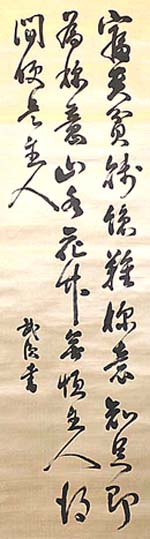 富貴貧賤總難稱意知足即
為稱意山水花竹無恒主人得
閒便是主人
書